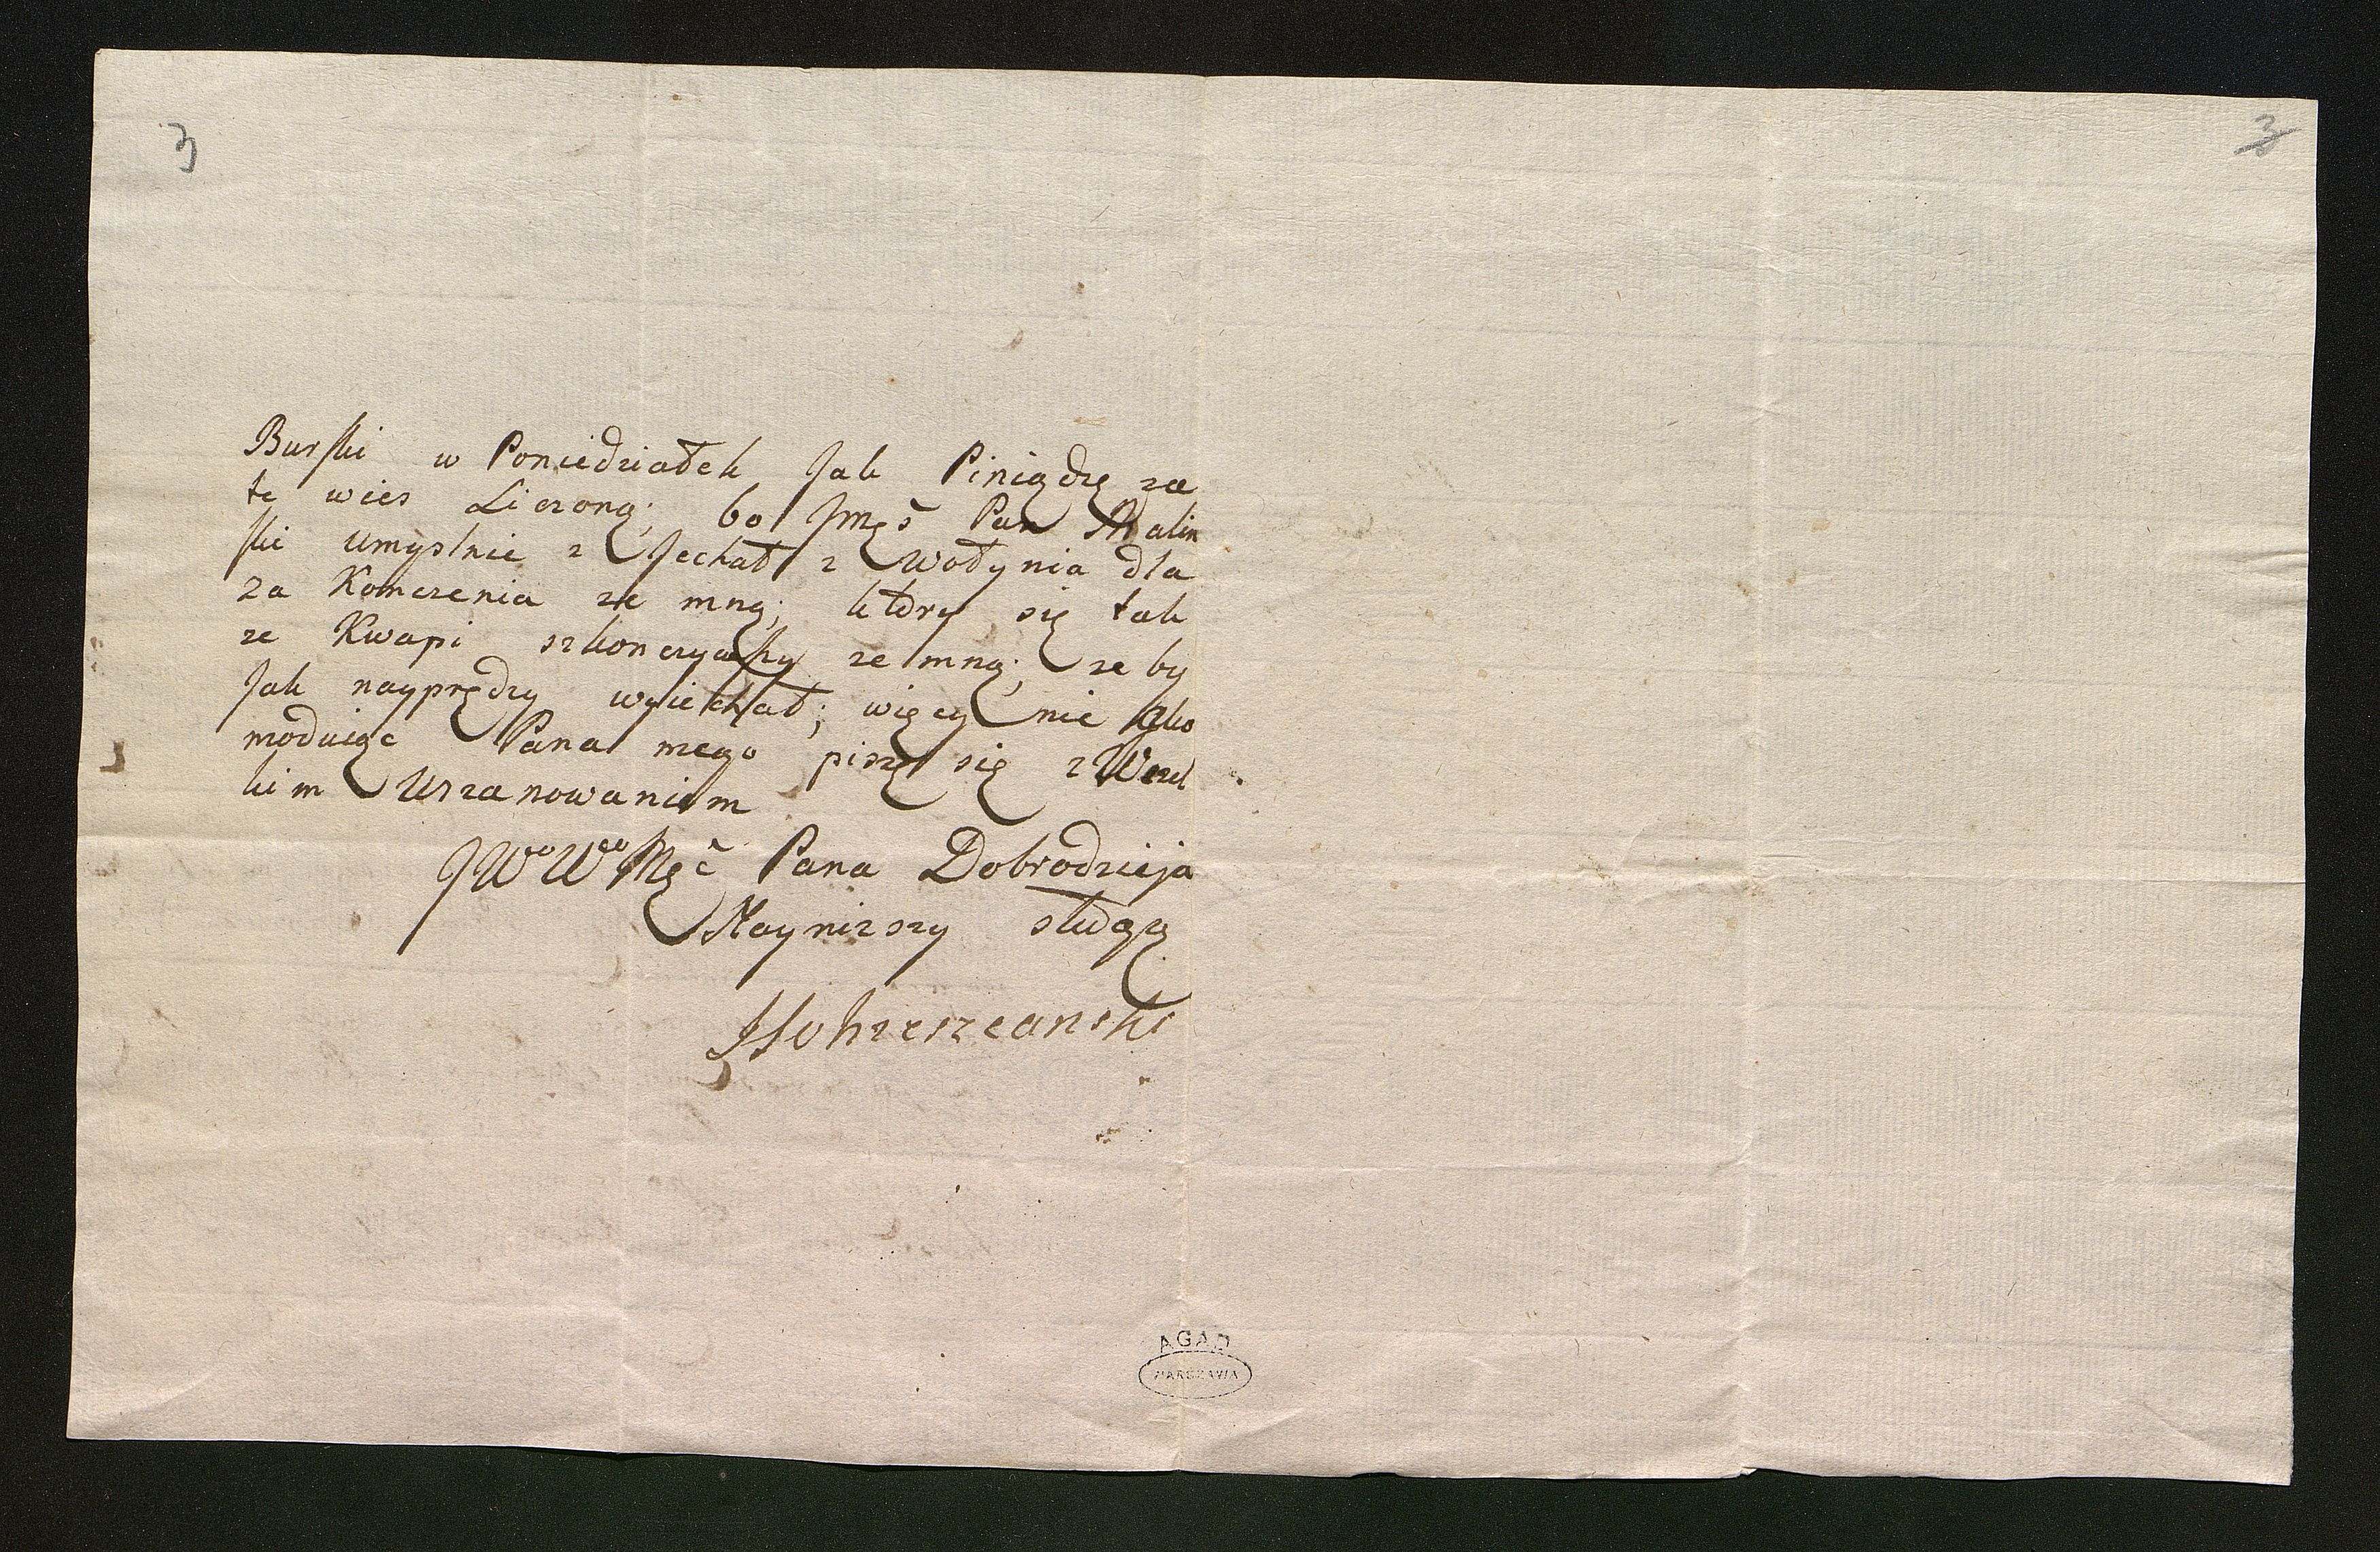 3
3
Burski w Poniedziałek Jak Piniądzę za
tę wies Liczoną; bo Jmęć Pan Malin
ski umyslnie z Jechał z Wołynia dla
za Konczenia ze mną; ktory się tak
ze Kwapi szkonczywszy ze mną; ze by
Jak nayprędzy wyiechał; więcy nie
moduiąc Pana mego piszę się z Wszel
kim Uszanowaniem
JWo Wo Męć Pana Dobrodzieja
Nayniszszy sługą
AGAD
WARSZAWA